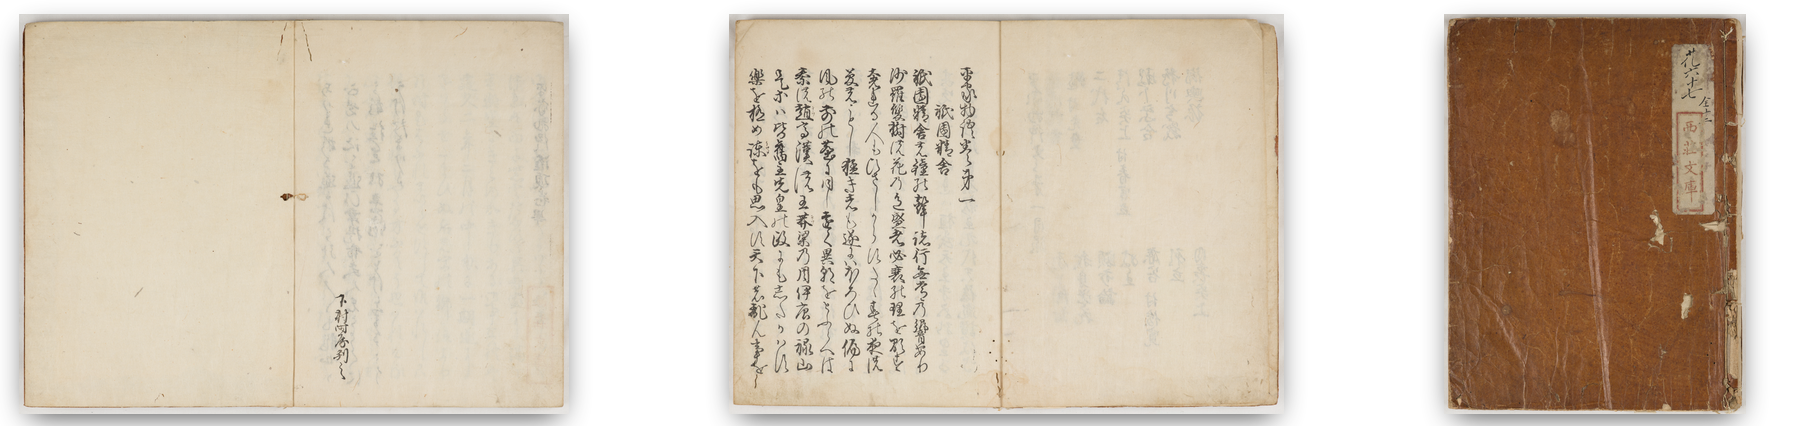 花六十七
西莊文庫
平家物語巻第一
祇園精舎
祇園精舎の鐘の聲諸行無常の響あり
沙羅雙樹の花の色盛者必衰の理を顕す
奢れる人もひさしからすたゝ春の夜の
夢のことし猛き者も遂にはほろひぬ偏に
風の前の塵に同し遠く異朝をとふらへは
秦の趙高漢の王莽梁の周伊唐の禄山
是等は皆舊主先皇の政にもしたかはす
樂を極め諫をも思入す天下の亂ん事を
下村時房刊之